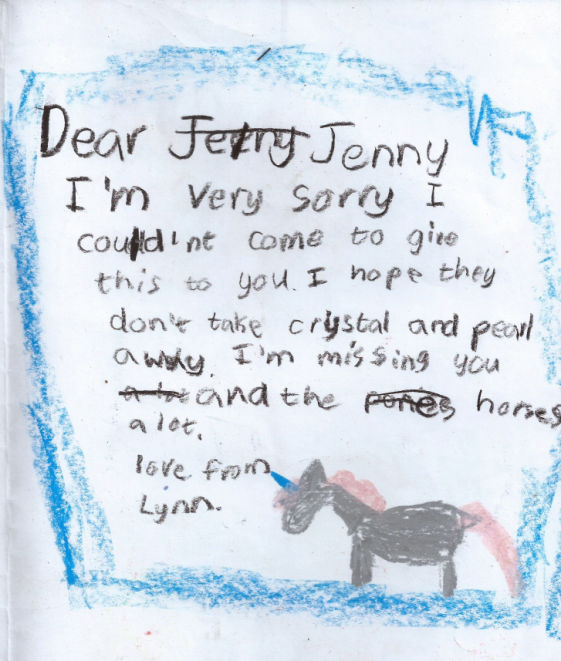 Dear Jetny Jenny
I'm very sorry I
could'nt come to give
this to you. I hope they
don't take crystal and pearl
away. I'm missing you
a lot and the ponies horses
a lot.
love from
Lynn.